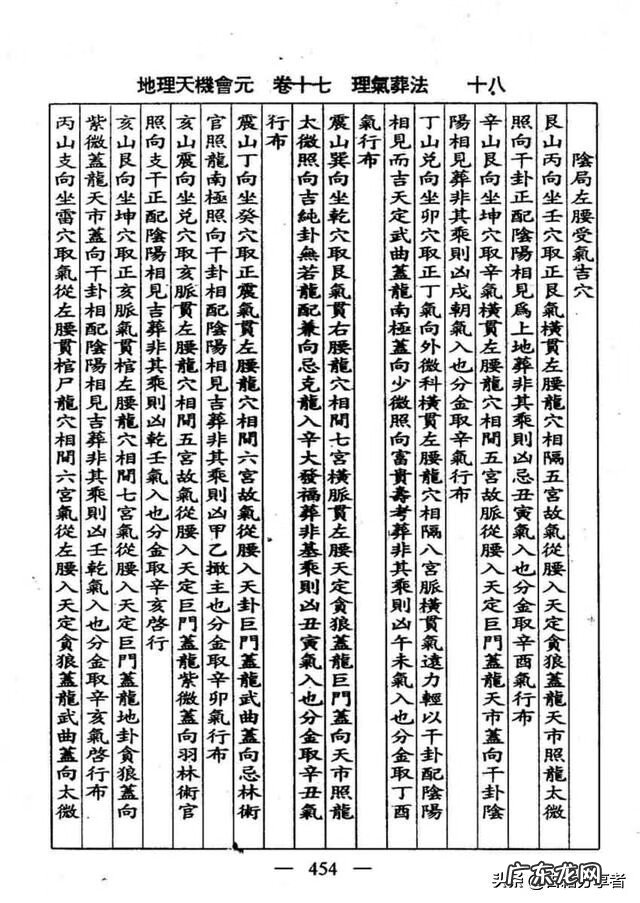 地理天機會元　卷十七　理氣葬法　十八
陰局左腰受氣吉穴
艮山丙向坐壬穴取正艮氣橫貫左腰龍穴相隔五宮故氣從腰入天定貪狼蓋龍天市照龍太微
照向干卦正配陰陽相見爲上地葬非其乘則凶忌丑寅氣入也分金取辛酉氣行布
辛山艮向坐坤穴取辛氣橫貫左腰龍穴相間五宮故脈從腰入天定巨門蓋龍天市蓋向干卦陰
陽相見葬非其乘則凶戌朝氣入也分金取辛氣行布
丁山兌向坐卯穴取正丁氣向外微科橫貫左腰龍穴相隔八宮脈橫貫氣遠力輕以干卦配陰陽
相見而吉天定武曲蓋龍南極蓋向少微照向富貴壽考葬非其乘則凶午未氣入也分金取丁酉
氣行布
震山巽向坐乾穴取艮氣貫右腰龍穴相間七宮橫脈貫左腰天定貪狼蓋龍巨門蓋向天市照龍
太微照向吉純卦無若龍配兼向忌克龍入辛大發福葬非基乘則凶丑寅氣入也分金取辛丑氣
行布
震山丁向坐癸穴取正震氣貫左腰龍穴相間六宮故氣從腰入天卦巨門蓋龍武曲蓋向忌林術
官照龍南極照向干卦相配陰陽相見吉葬非其乘則凶甲乙撖主也分金取辛卯氣行布
亥山震向坐兌穴取亥脈貫左腰龍穴相間五宮故氣從腰入天定巨門蓋龍紫微蓋向羽林術官
照向支干正配陰陽相見吉葬非其乘則凶乾壬氣入也分金取辛亥啓行
亥山艮向坐坤穴取正亥脈氣貫棺左腰龍穴相間七宮氣從腰入天定巨門蓋龍地卦貪狼蓋向
紫微蓋龍天市蓋向干卦相配陰陽相見吉葬非其乘則凶壬乾氣入也分金取辛亥氣啓行布
丙山支向坐雷穴取氣從左腰貫棺尸龍穴相間六宮氣從左腰入天定貪狼蓋龍武曲蓋向太微
— 454 —
广东龙网
头条@古籍分享者